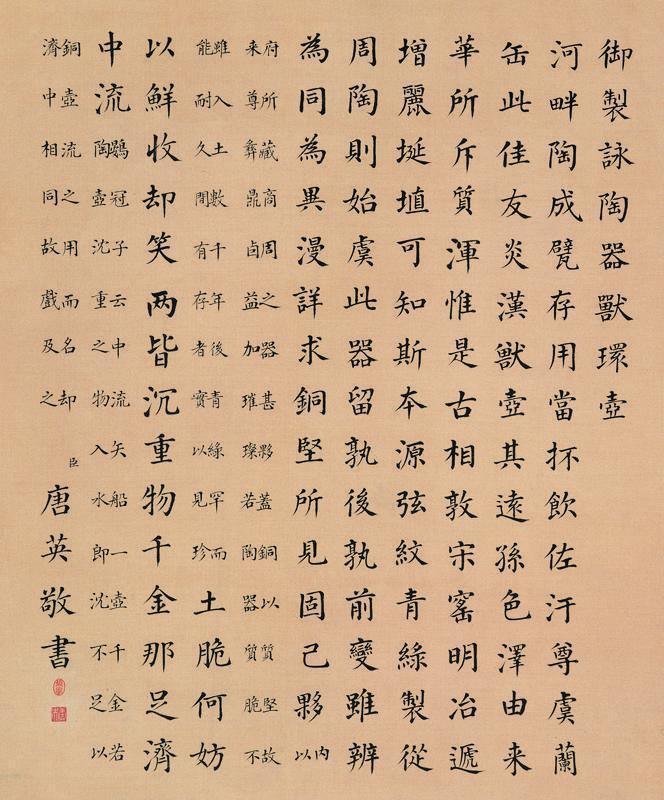 御製詠陶器獸環壺
河畔陶成甓存用當抔飲佐汙尊虞蘭
缶此佳友炎漢獸壺其遠孫色澤由来
華所斥質渾惟是古相敦宋窰明冶遞
增麗埏埴可知斯本源弦紋青綠製從
周陶則始虞此器留孰後孰前變雖辨
為同為異漫詳求銅堅所見固已夥內以
府所藏商周之器甚夥蓋銅以質堅故
来尊彝鼎卣益加璀璨若陶器質脆不
雖入土數千年後青綠罕而
能耐久間有存者實以見珍
土脆何妨
以鮮收却笑两皆沉重物千金那足濟
中流
鶡冠子云中流矢船一壺千金若
陶壺沈重之物入水即沈不足以
銅壺流之用而名却
濟中相同故戲及之
臣唐英敬書